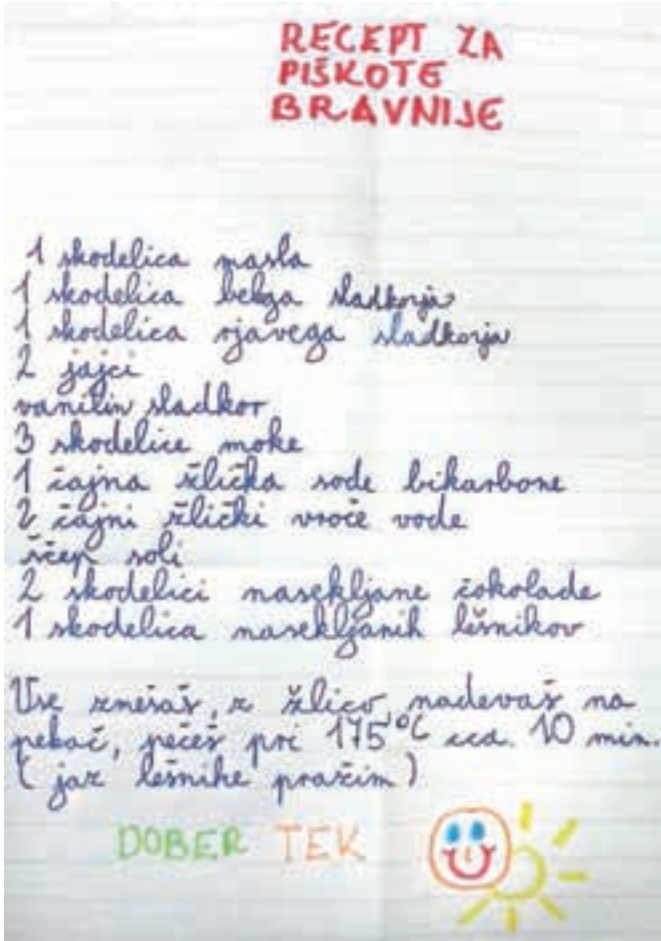 RECEPT ZA
PIŠKOTE
BRAVNIJE
1 skodelica masla
1 skodelica belega sladkorja
1 skodelica rjavega sladkorja
2 jajci
vanilin sladkor
3 skodelice moke
1 čajna žlička sode bikarbone
2 čajni žlički vroče vode
ščep soli
2 skodelici nasekljane čokolade
1 skodelica nasekljanih lešnikov
Vse zmešaš, z žlico nadevaš na
pekač, pečeš pri 175°C cca. 10 min.
(jaz lešnike pražim)
DOBER TEK